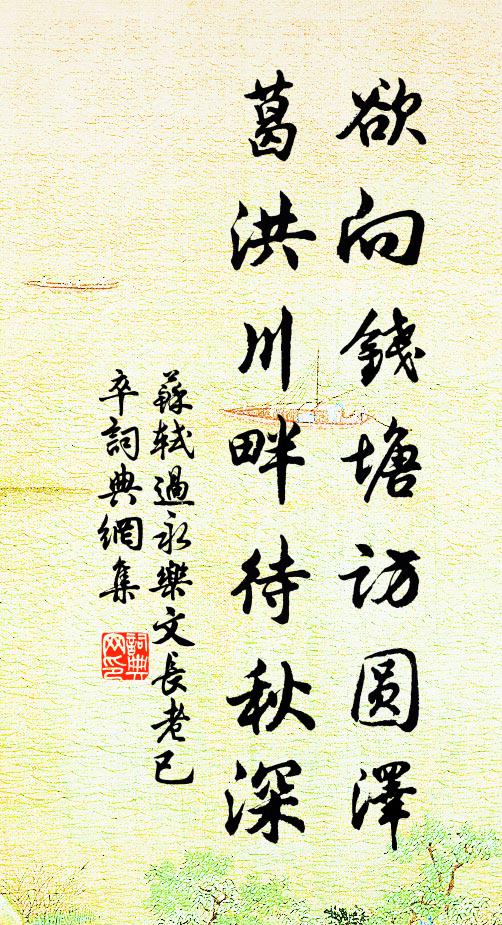 欲向錢塘訪圓澤
葛洪川畔待秋深
蘇軾過永樂文長老已
卒詞典網集
詞典
网印